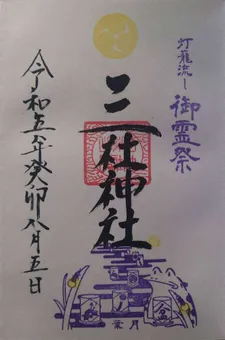 灯籠流し 御霊祭
三社神社
令和五年癸卯八月五日
葉月